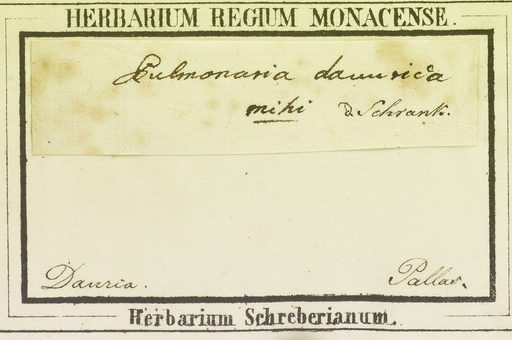 HERBARIUM REGIUM MONACENSE.
Pulmonaria dauurica
mihi D Schrank.
Dauria.
Pallas.
Herbarium Schreberianum.